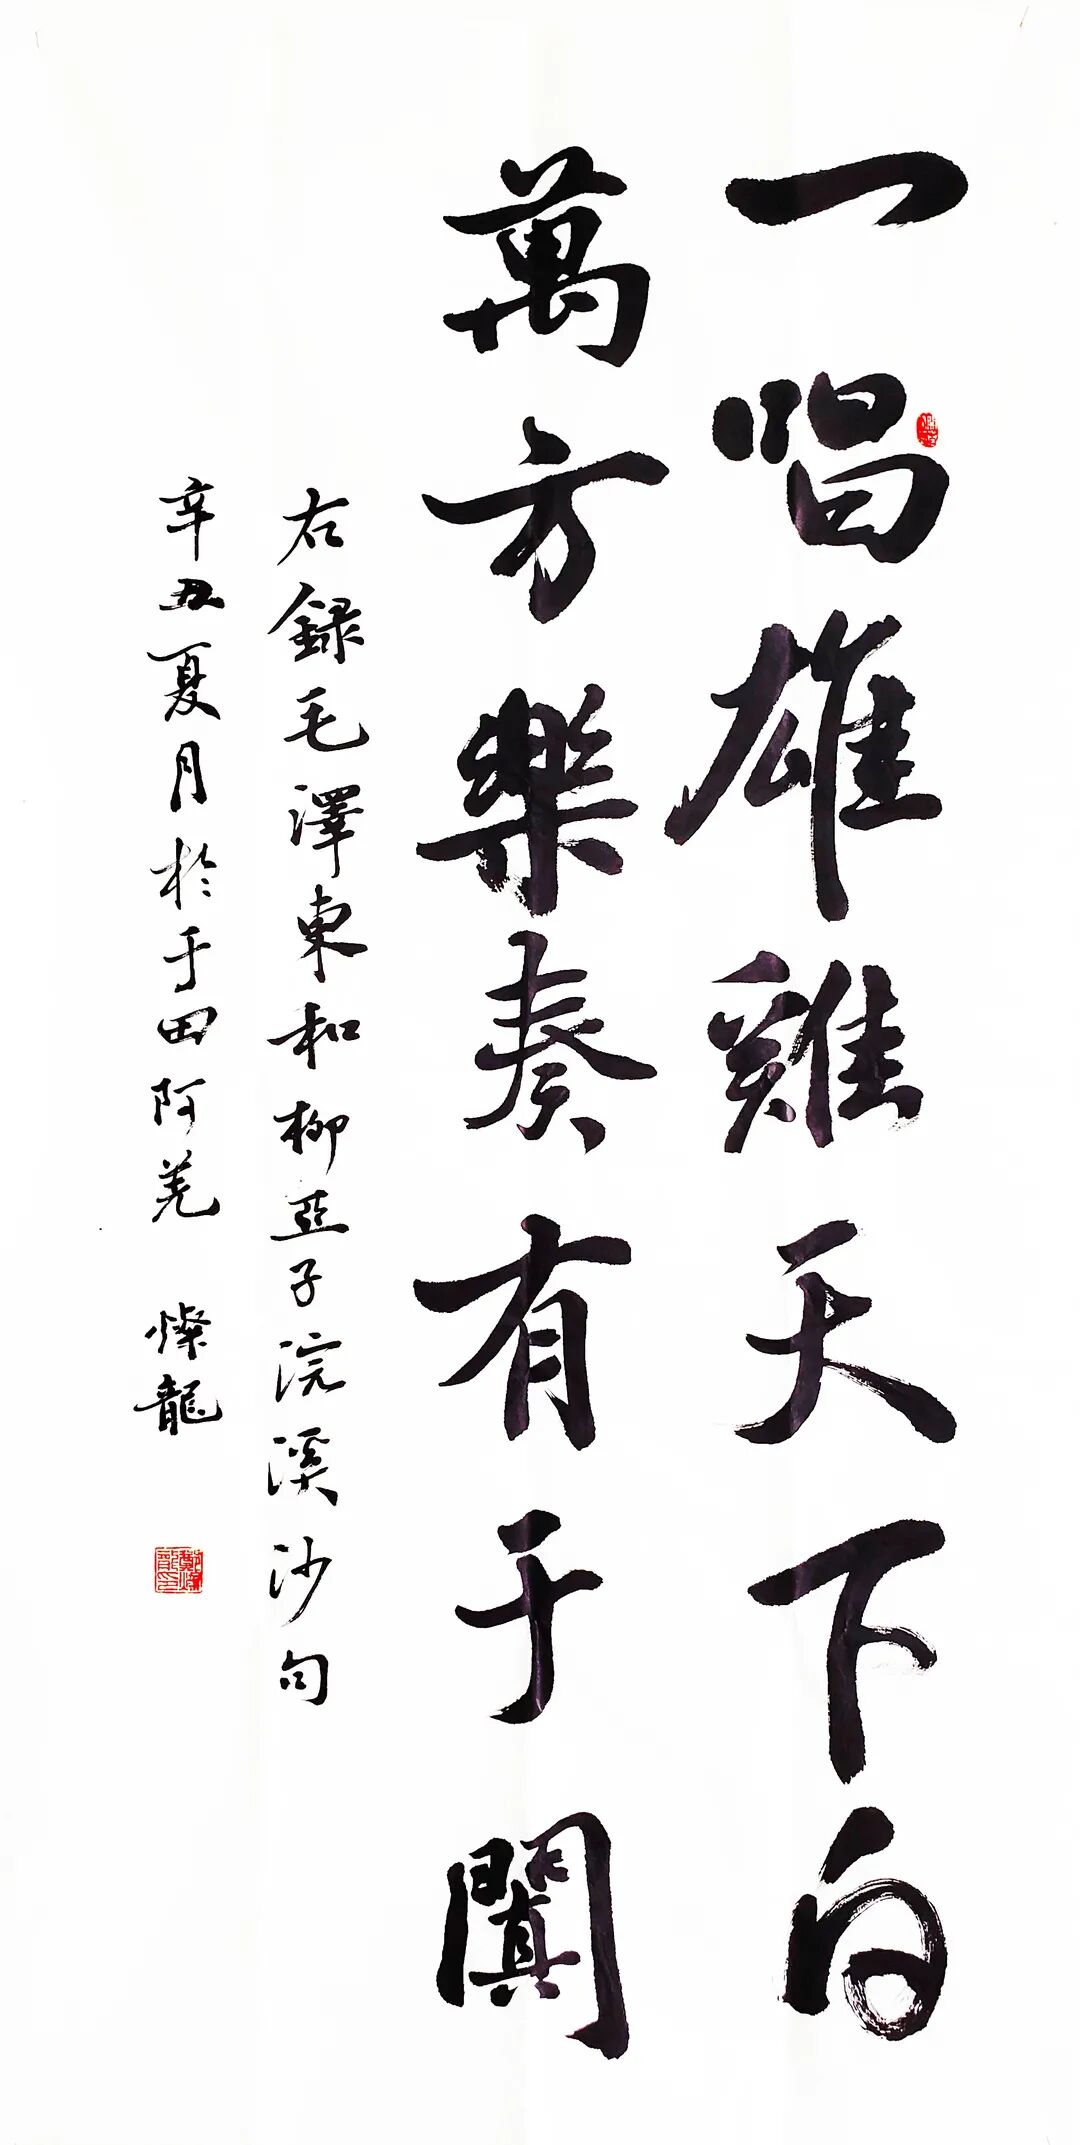 一唱雄雞天下白
萬方樂奏有于闐
右録毛澤東和柳亞子浣溪沙句
辛丑夏月於于田阿羌 燦龍